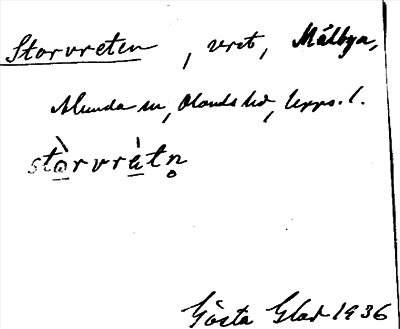 Storvreten, vret, Målbya,
Almunda sn, Olands hd, Upps. l.
stòrvrétn̥
Gösta Glad 1936